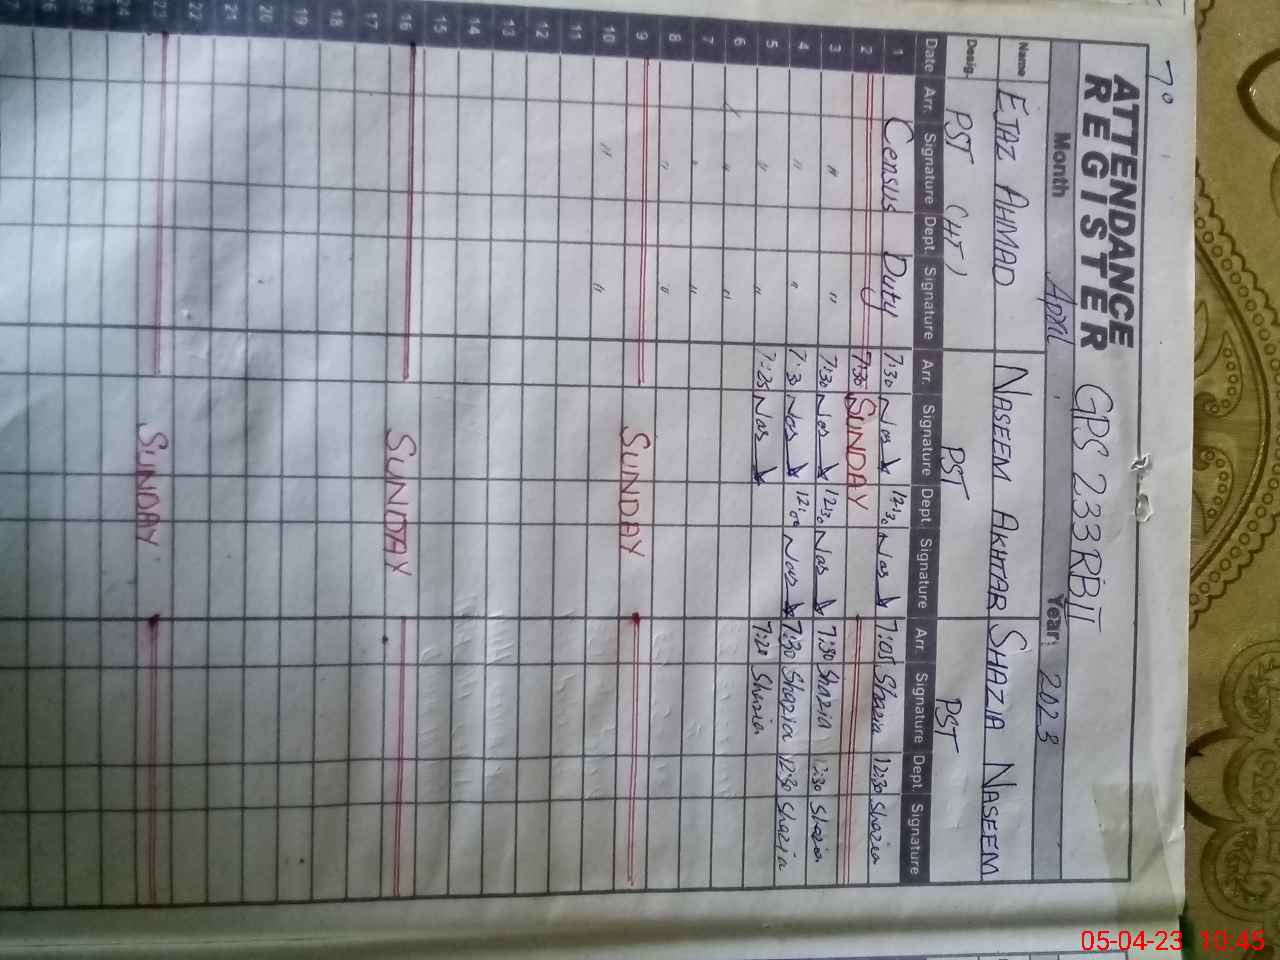 ATTENDANCE
REGISTER GPS 233 RB II
Month April Year: 2023
Name EJAZ AHMAD NASEEM AKHTAR SHAZIA NASEEM
Desig. PST (HT) PST PST
Date Arr. Signature Dept. Signature Arr. Signature Dept. Signature Arr. Signature Dept. Signature
1 Census Duty 7:30 Nas 12:30 Nas 7:05 Shazia 12:30 Shazia
2 7:30 SUNDAY
3 " " 7:30 Nas 12:30 Nas 7:30 Shazia 12:30 Shazia
4 " " 7:30 Nas 12:00 Nas 7:30 Shazia 12:30 Shazia
5 " " 7:25 Nas 7:20 Shazia
6 " "
7 " "
8 " "
9 SUNDAY
10 " "
11
12
13
14
15
16 SUNDAY
17
18
19
20
21
22
23 SUNDAY
24
25
26
05-04-23 10:45